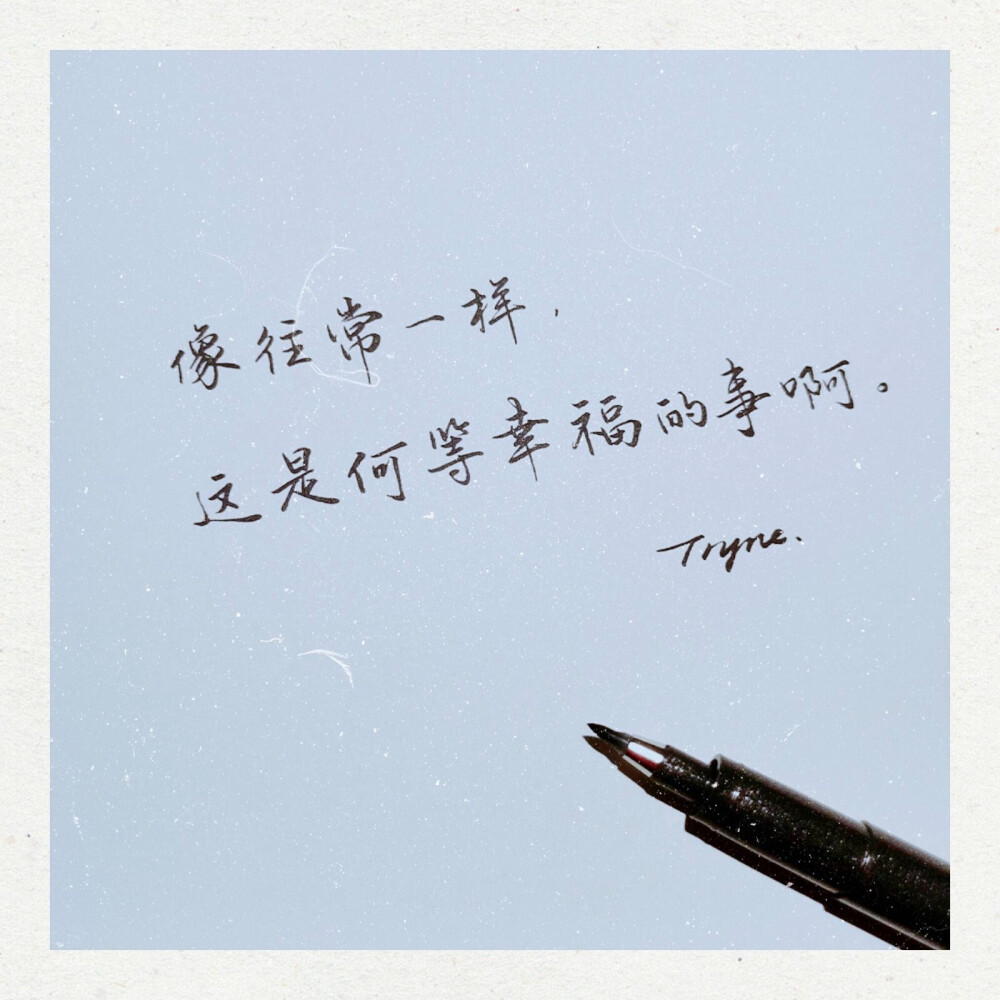 像往常一样，
这是何等幸福的事啊。
Tryne.